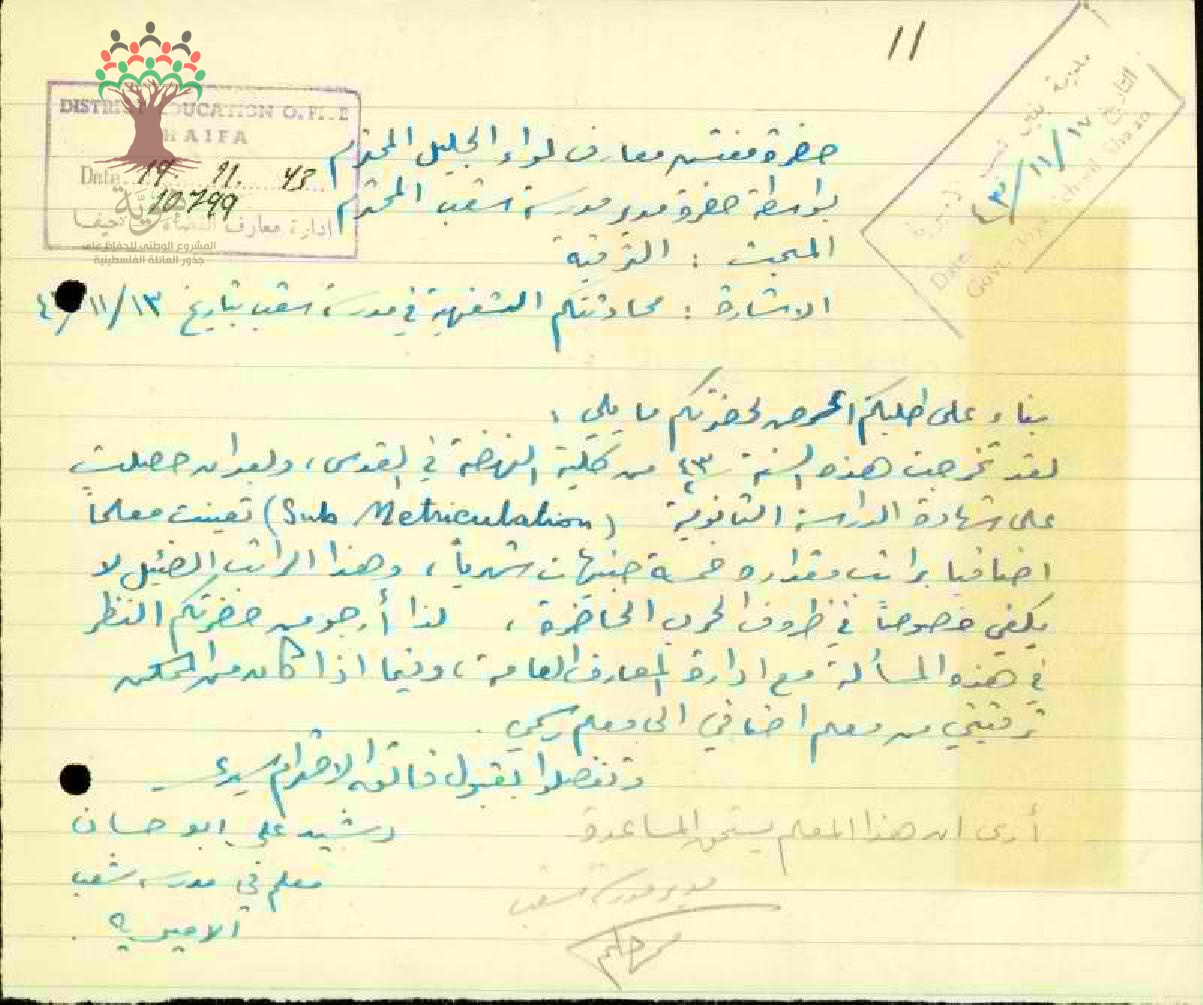 11
DISTRICT EDUCATION OFFICE
HAIFA
Date 19. 11. 43
10799
ادارة معارف القضاء حيفا
المشروع الوطني للحفاظ على
جذور العائلة الفلسطينية
التاريخ ١٧/١١/٤٣
Date
Govt. Boys School Shaab
حضرة مفتش معارف لواء الجليل المحترم
بواسطة حضرة مدير مدرسة شعب المحترم
المبحث : الترقية
الاشارة : محادثتكم الشفهية في مدرسة شعب بتاريخ ١٣/١١/
بناء على طلبكم اعرض لحضرتكم ما يلي :
لقد تخرجت هذه السنة ٤٣ من كلية النهضة في القدس، وبعد ان حصلت
على شهادة الدراسة الثانوية (Sub Metriculation) تعينت معلماً
اضافيا براتب مقداره خمسة جنيهات شهرياً، وهذا الراتب الضئيل لا
يكفي خصوصاً في ظروف الحرب الحاضرة، لذا أرجو من حضرتكم النظر
في هذه المسألة مع ادارة المعارف العامة، وفيما اذا كان من الممكن
ترقيتي من معلم اضافي الى معلم رسمي.
وتفضلوا بقبول فائق الاحترام سيدي
رشيد علي ابو حسان
معلم في مدرسة شعب
الاميرية.
أرى ان هذا المعلم يستحق المساعدة
مدير مدرسة شعب